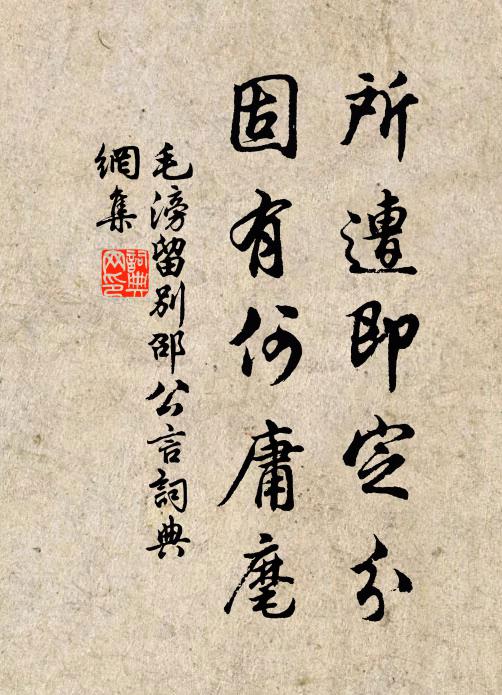 所遭即定分
固有何庸麾
毛滂留別邵公言詞典
網集
詞典
网印